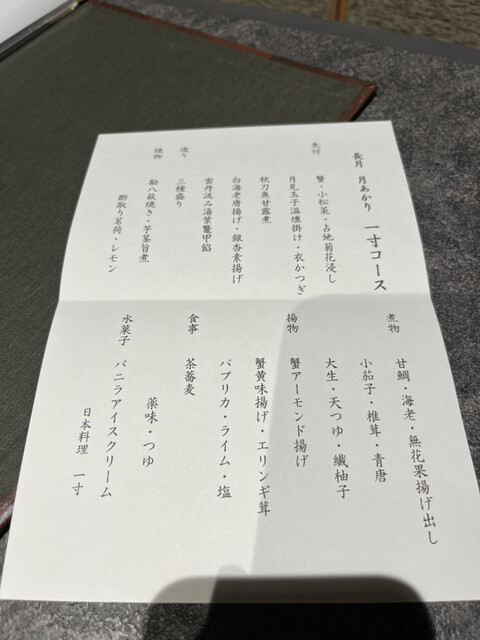 長月 月あかり 一寸コース
先付 蟹・小松菜・占地菊花浸し
月見玉子温燻掛け・衣かつぎ
秋刀魚甘露煮
白海老唐揚げ・銀杏素揚げ
雲丹汲み湯葉鼈甲餡
造り 三種盛り
焼物 勘八萩焼き・芋茎旨煮
酢取り茗荷・レモン
煮物 甘鯛・海老・無花果揚げ出し
小茄子・椎茸・青唐
大生・天つゆ・繊柚子
揚物 蟹アーモンド揚げ
蟹黄味揚げ・エリンギ茸
パプリカ・ライム・塩
食事 茶蕎麦
薬味・つゆ
水菓子 バニラアイスクリーム
日本料理 一寸